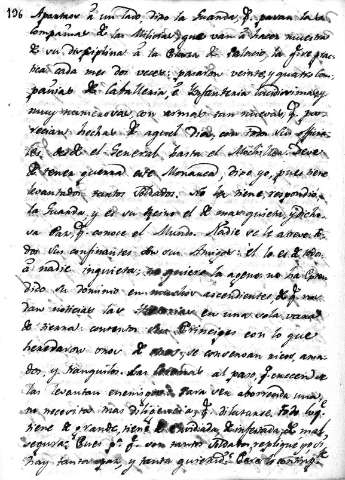 196 Apartaos á un lado, dijo la Guarda, q.e pasan las
Compañias de las Milicias, que van á hacer muestra
de su disciplina á la Plaza de Palacio, lo q.e se prac
tica cada mes dos veces: pasaron veinte, y quatro Com
pañias de Caballeria, é Infanteria lucidisimas, y
muy numerosas, con armas tan nuevas, q.e pa
recian hechas de aquel dia, con todos sus oficia
les, desde el General hasta el Mochiller. Debe
de tener guerra este Monarca, dije yo, pues tiene
levantados tantos Soldados. No la tiene, respondió
la Guarda, y es su Reino el de mas quieta, y dicho
sa Paz, q.e conoce el Mundo. Nadie se le atreve: to
dos sus confinantes son sus Amigos: él lo es de todos:
á nadie inquieta; no quiere lo ageno: no ha esten
dido su dominio en muchos ascendientes de q.e nos
dan noticias las Historias en una sola vara
de tierra: contentos sus Principes con lo que
heredaron unos de otros, se conservan ricos, ama
dos, y tranquilos. al paso q.e encien
las levantan enemigos. Para ser aborrecida una,
no necesita mas diligencia, q.e dilatarse. Todo lug.r
tiene de grande, tiene de envidiada, de infestada, de mal
segura. Pues p.a q.e son tantos Soldados, repliqué yo, si
hay tanta paz, y tanta quietud?